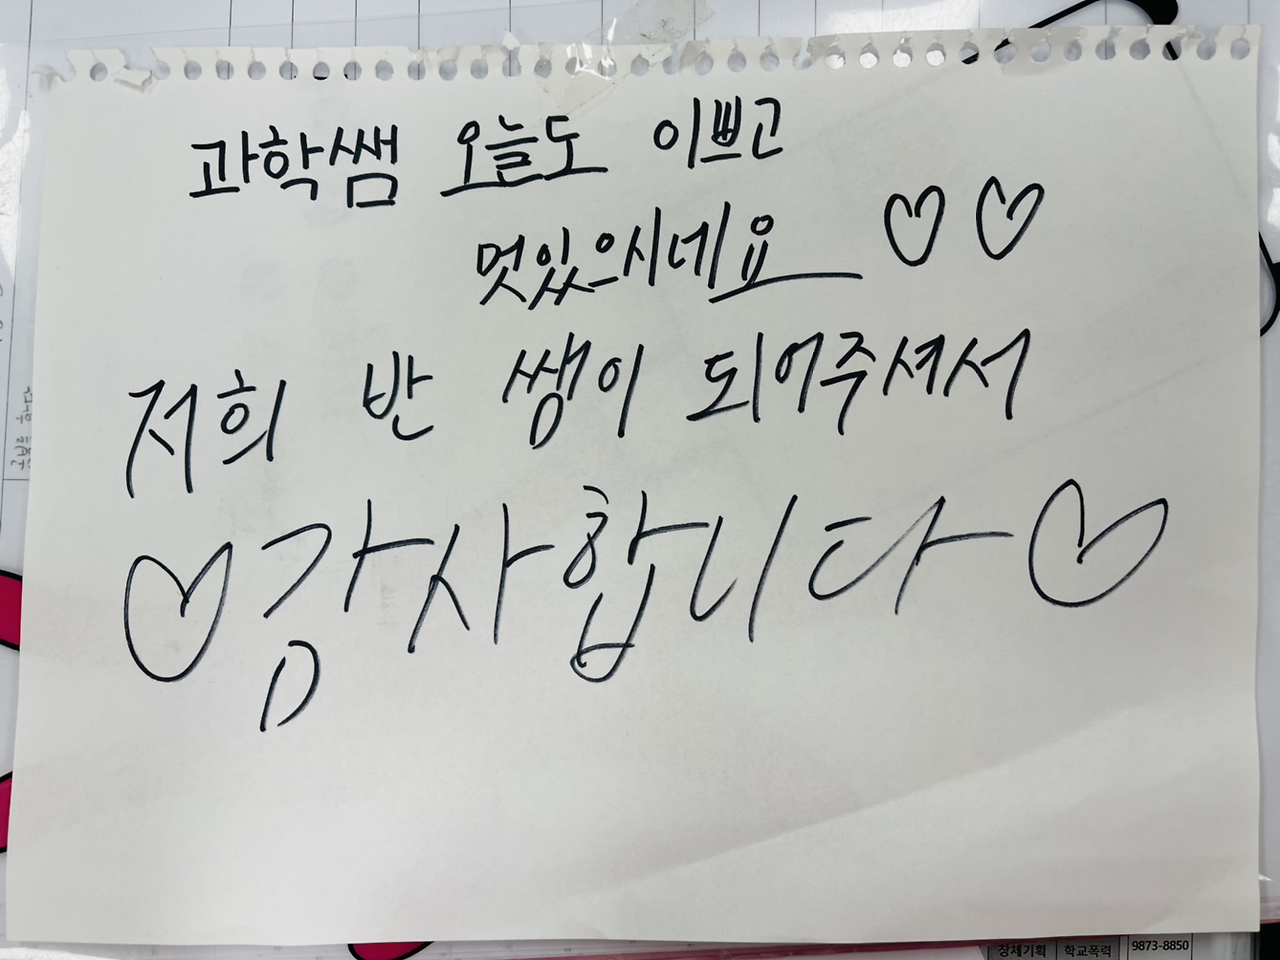 과학쌤 오늘도 이쁘고
멋있으시네요 ♡ ♡
저희 반 쌤이 되어주셔서
♡감사합니다♡
장체기획 학교폭력 9873-8850